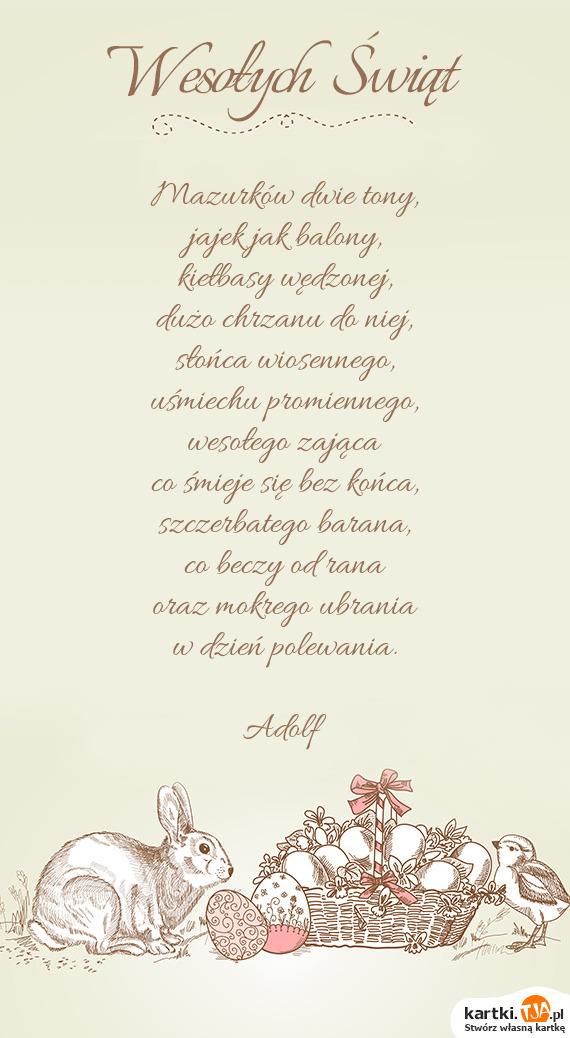 Wesołych Świąt
Mazurków dwie tony,
jajek jak balony,
kiełbasy wędzonej,
dużo chrzanu do niej,
słońca wiosennego,
uśmiechu promiennego,
wesołego zająca
co śmieje się bez końca,
szczerbatego barana,
co beczy od rana
oraz mokrego ubrania
w dzień polewania.
Adolf
kartki.TJA.pl
Stwórz własną kartkę